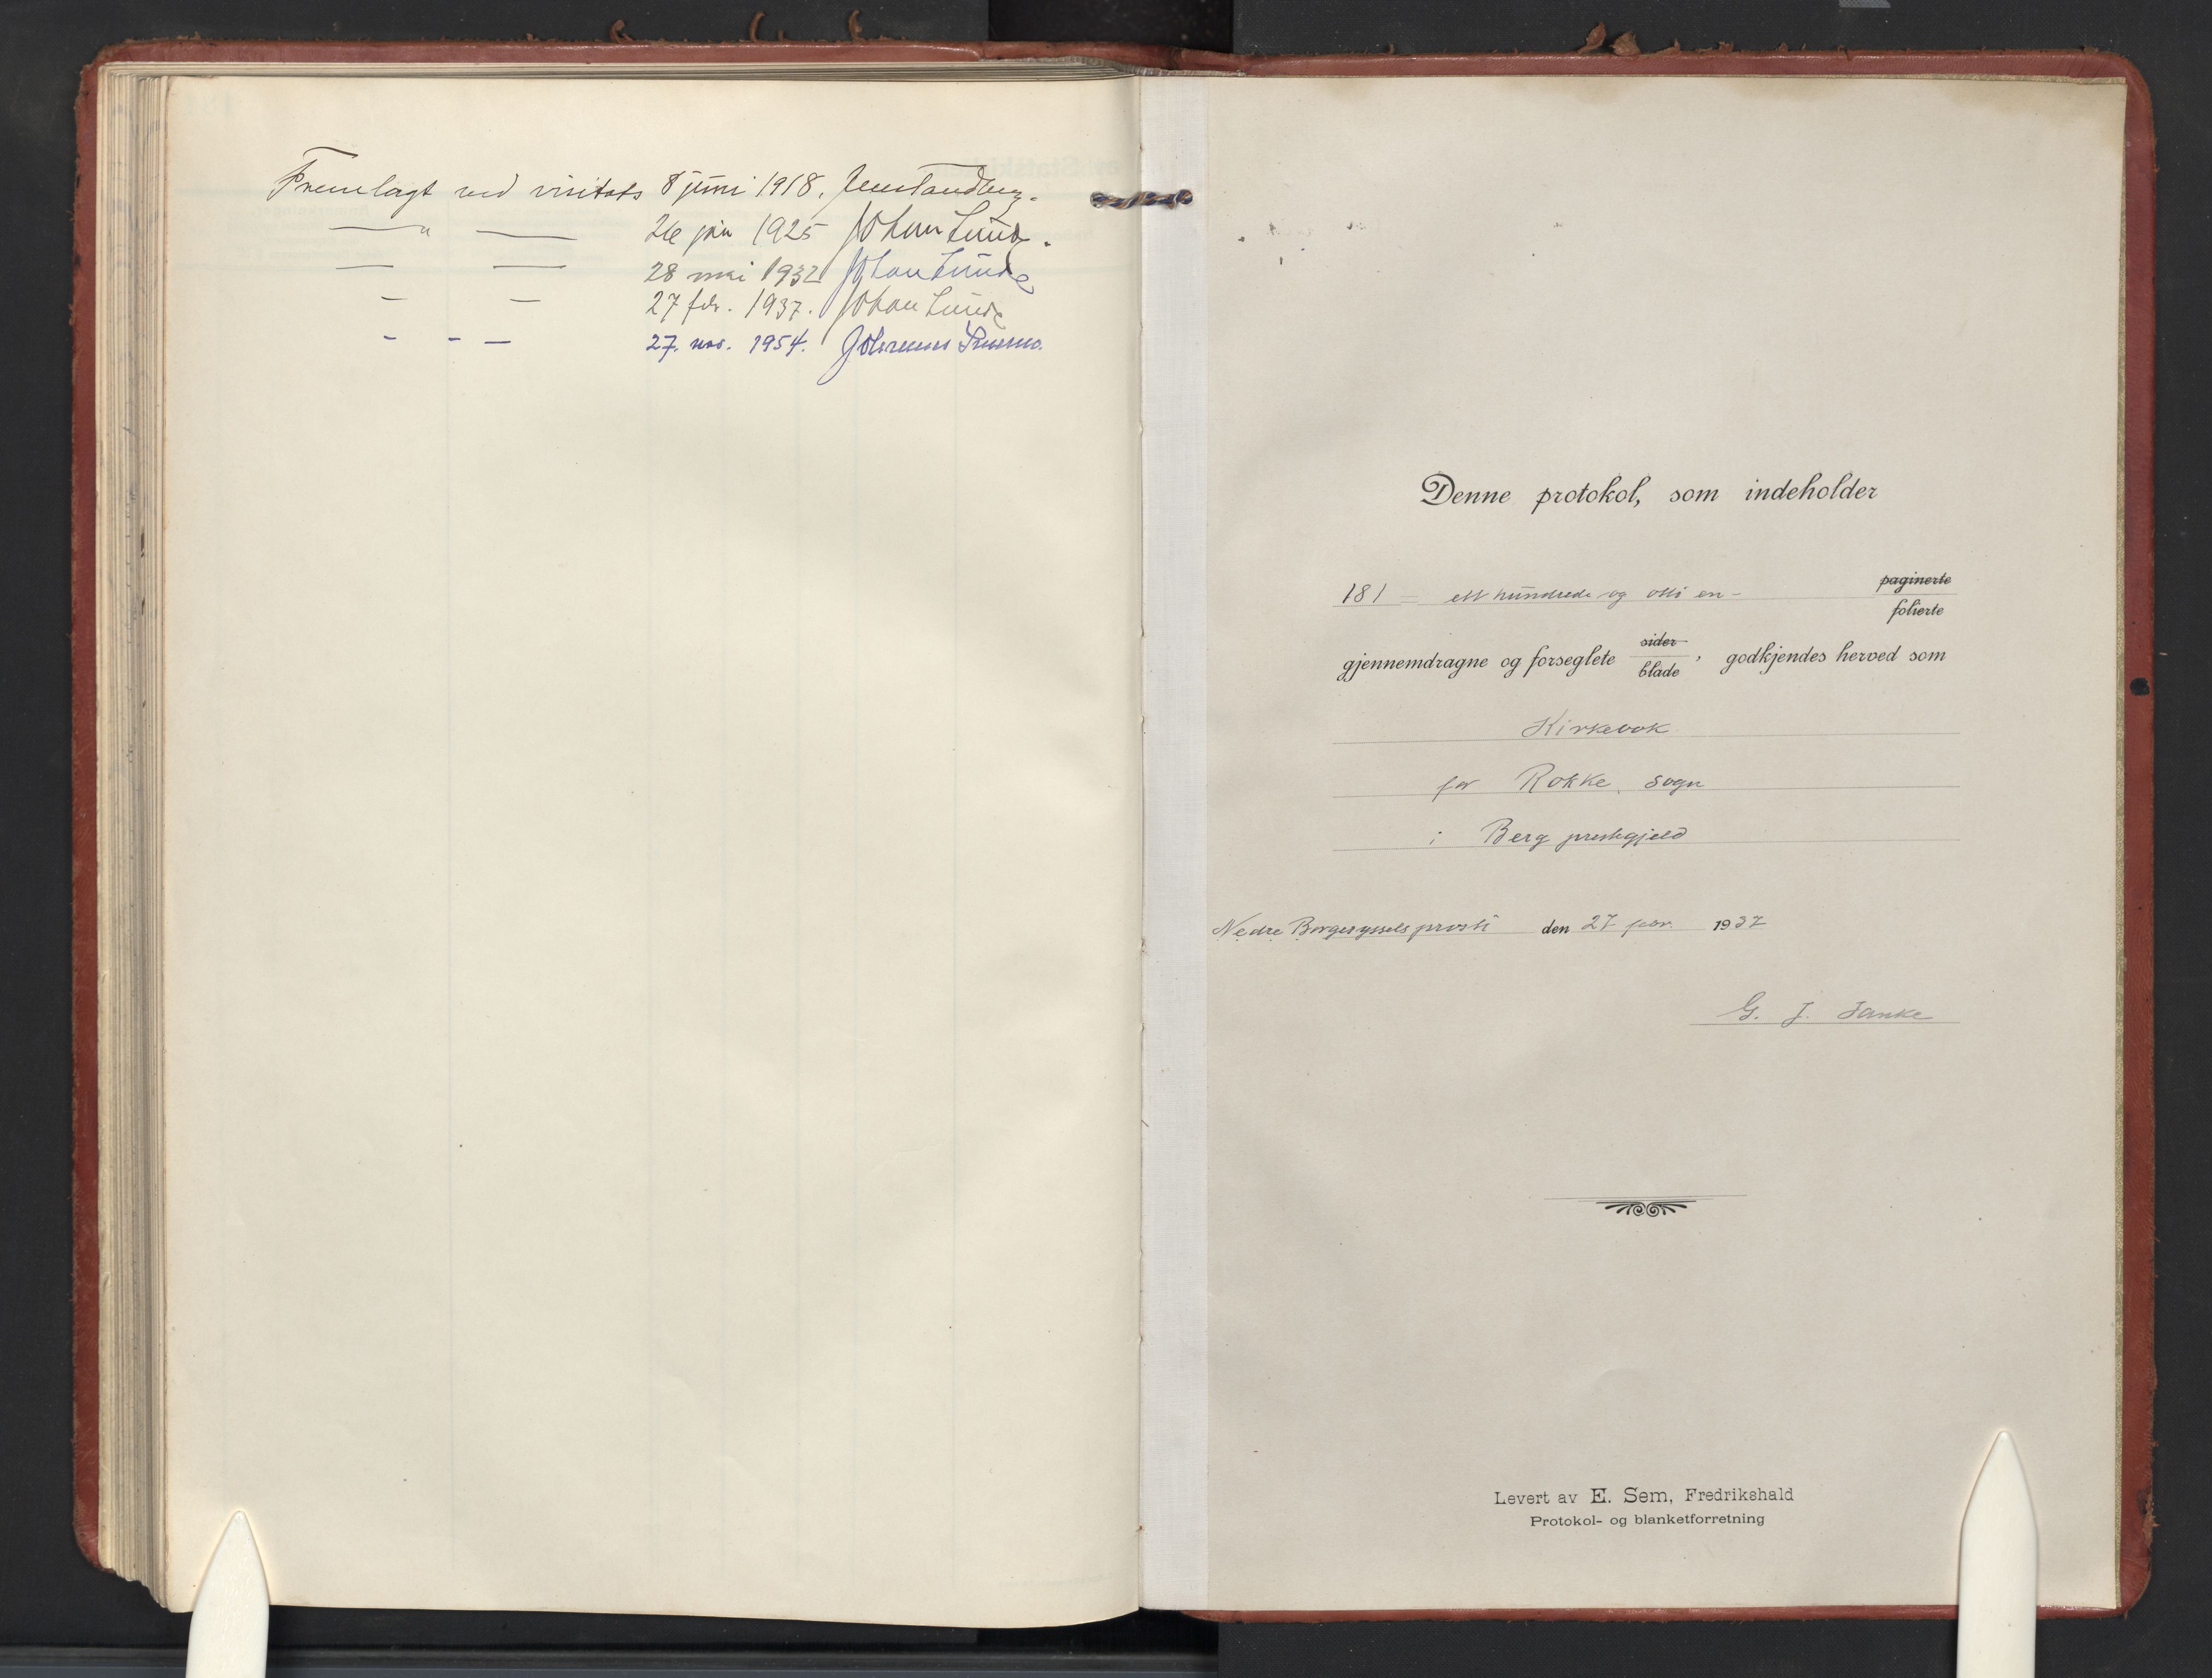 Fremlagt ved visitats 8 juni 1918. Jens Tandberg.
—"— 26 jan 1925 Johan Lunde.
— — 28 mai 1932 Johan Lunde
— — 27 febr. 1937. Johan Lunde
- - — 27. nov. 1954. Johannes Smemo.
Denne protokol, som indeholder
181 — ett hundrede og otti en —
paginerte
folierte
gjennemdragne og forseglete sider blade, godkjendes herved som
Kirkebok
for Rokke sogn
i Berg prestegjeld
Nedre Borgesyssels prosti den 27 febr. 1937
G. J. Janke
Levert av E. Sem, Fredrikshald
Protokol- og blanketforretning